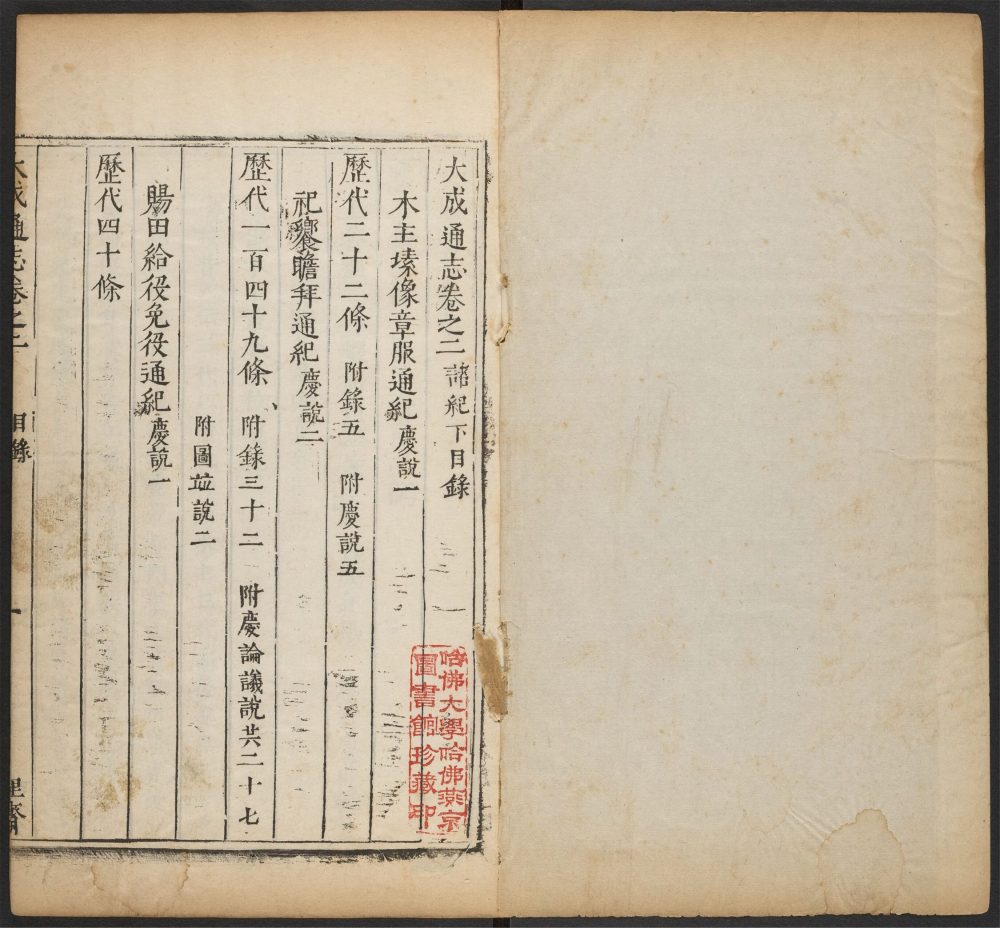 大成通志卷之二 諸紀下目錄
木主塐像章服通紀 慶說一
歷代二十二條 附錄五 附慶說五
祀饗瞻拜通紀 慶說二
歷代一百四十九條 附錄三十二 附慶論議說共二十七
附圖並說二
賜田給役免役通紀 慶說一
歷代四十條
大成通志卷之二 目錄 一
哈佛大學哈佛燕京
圖書館珍藏印